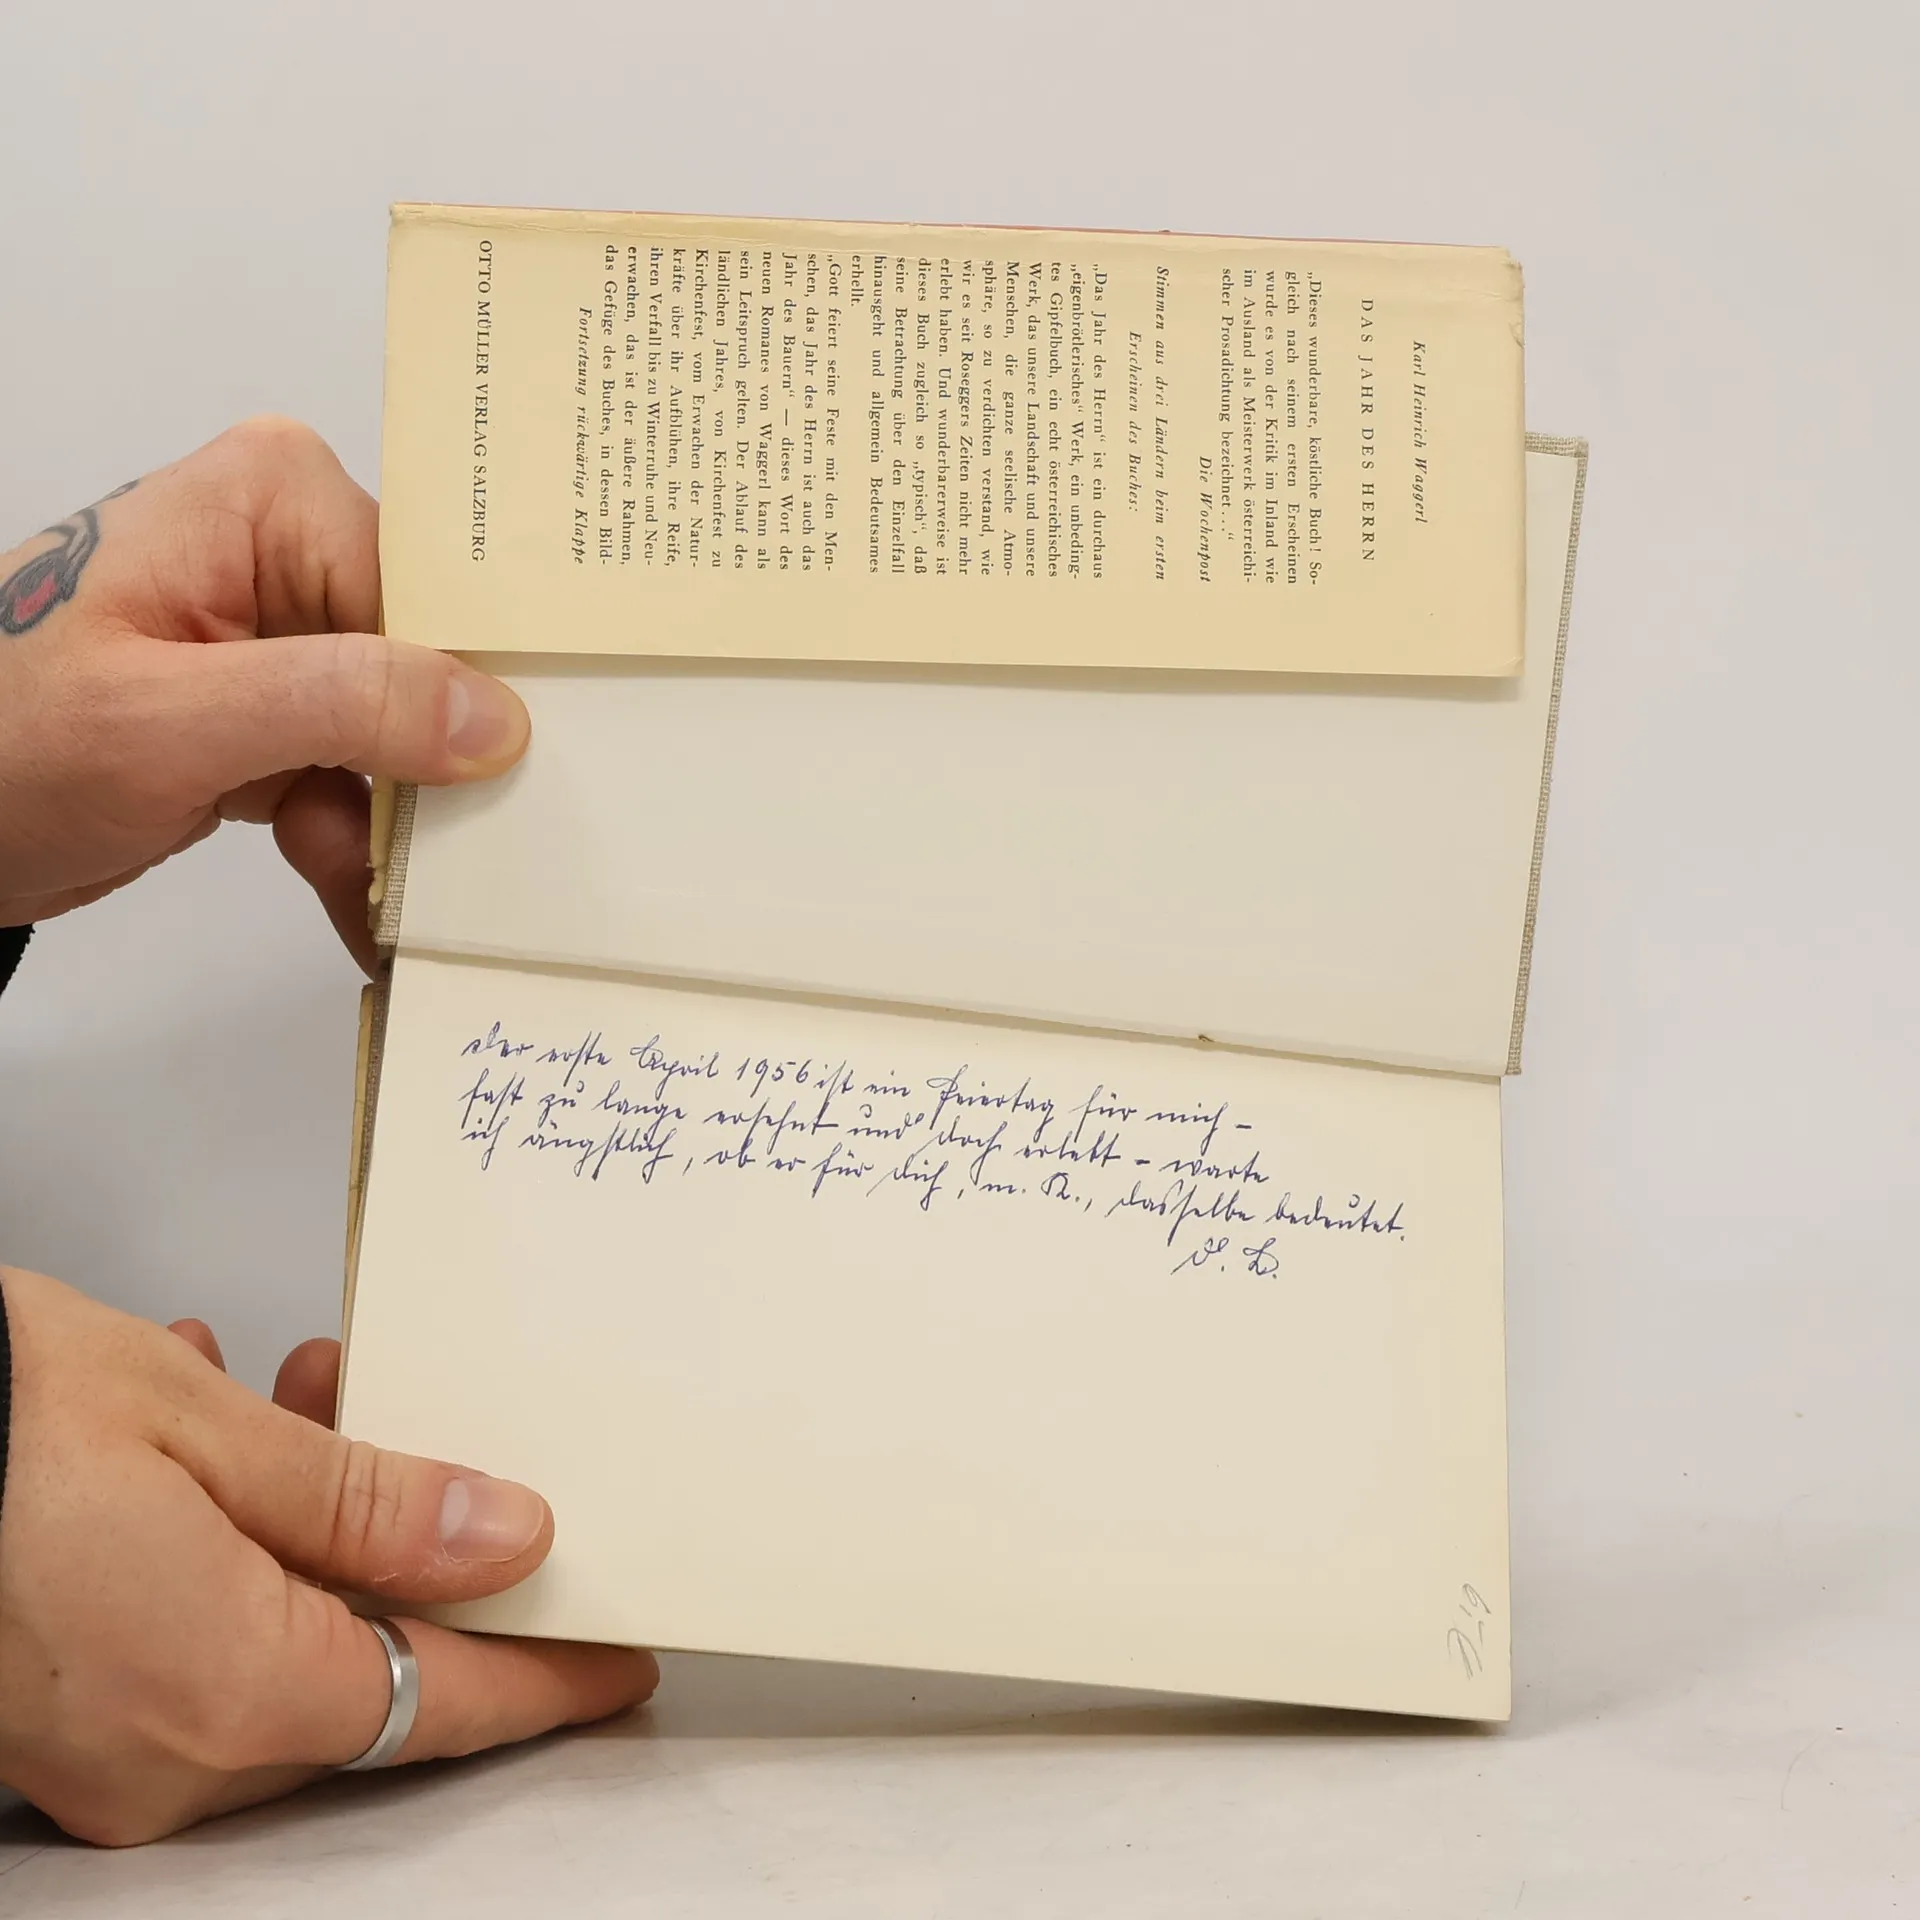 Karl Heinrich Waggerl
DAS JAHR DES HERRN
„Dieses wunderbare, köstliche Buch! So-
gleich nach seinem ersten Erscheinen
wurde es von der Kritik im Inland wie
im Ausland als Meisterwerk österreichi-
scher Prosadichtung bezeichnet...“
Die Wochenpost
Stimmen aus drei Ländern beim ersten
Erscheinen des Buches:
„Das Jahr des Herrn“ ist ein durchaus
„eigenbrötlerisches“ Werk, ein unbeding-
tes Gipfelbuch, ein echt österreichisches
Werk, das unsere Landschaft und unsere
Menschen, die ganze seelische Atmo-
sphäre, so zu verdichten verstand, wie
wir es seit Roseggers Zeiten nicht mehr
erlebt haben. Und wunderbarerweise ist
dieses Buch zugleich so „typisch“, daß
seine Betrachtung über den Einzelfall
hinausgeht und allgemein Bedeutsames
erhellt.
„Gott feiert seine Feste mit den Men-
schen, das Jahr des Herrn ist auch das
Jahr des Bauern“ — dieses Wort des
neuen Romanes von Waggerl kann als
sein Leitspruch gelten. Der Ablauf des
ländlichen Jahres, von Kirchenfest zu
Kirchenfest, vom Erwachen der Natur-
kräfte über ihr Aufblühen, ihre Reife,
ihren Verfall bis zu Winterruhe und Neu-
erwachen, das ist der äußere Rahmen,
das Gefüge des Buches, in dessen Bild-
Fortsetzung rückwärtige Klappe
OTTO MÜLLER VERLAG SALZBURG
Der erste April 1956 ist ein Feiertag für mich –
fast zu lange ersehnt und doch erlebt – warte
ich ängstlich, ob er für dich, m. K., dasselbe bedeutet.
D. L.